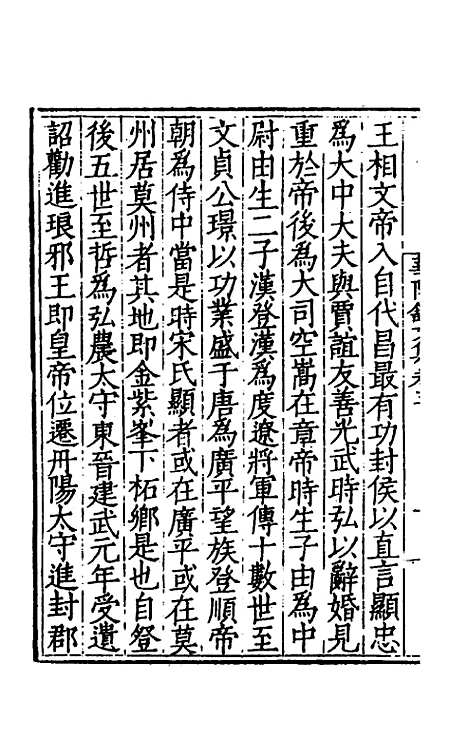 王相文帝入自代昌最有功封侯以直言顯忠
爲大中大夫與賈誼友善光武時弘以辭婚見
重於帝後爲大司空嵩在章帝時生子由爲中
尉由生二子漢登漢爲度遼將軍傳十數世至
文貞公璟以功業盛于唐爲廣平望族登順帝
朝爲侍中當是時宋氏顯者或在廣平或在莫
州居莫州者其地即金紫峯下柘鄉是也自登
後五世至哲爲弘農太守東晉建武元年受遺
詔勸進琅邪王即皇帝位遷丹陽太守進封郡